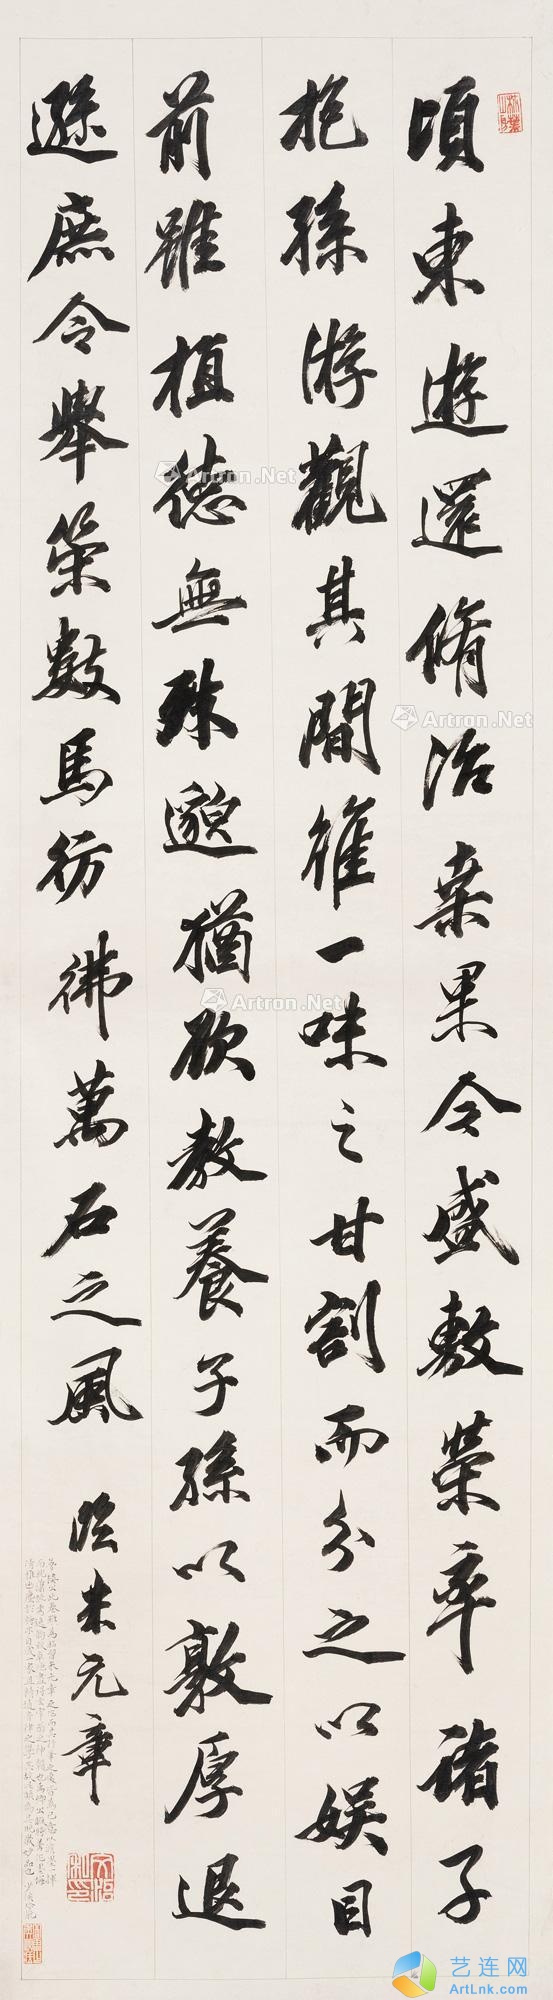 頃東遊還脩治桒果今盛敷榮率諸子
抱孫游觀其間雖一味之甘割而分之以娱目
前雖植德無殊邈猶欲教養子孫以敦厚退
遜庶令舉策數馬彷彿萬石之風
臨米元章
Artron.Net
Artron.Net
Artron.Net
Artron.Net
艺连网
ArtLnk.com